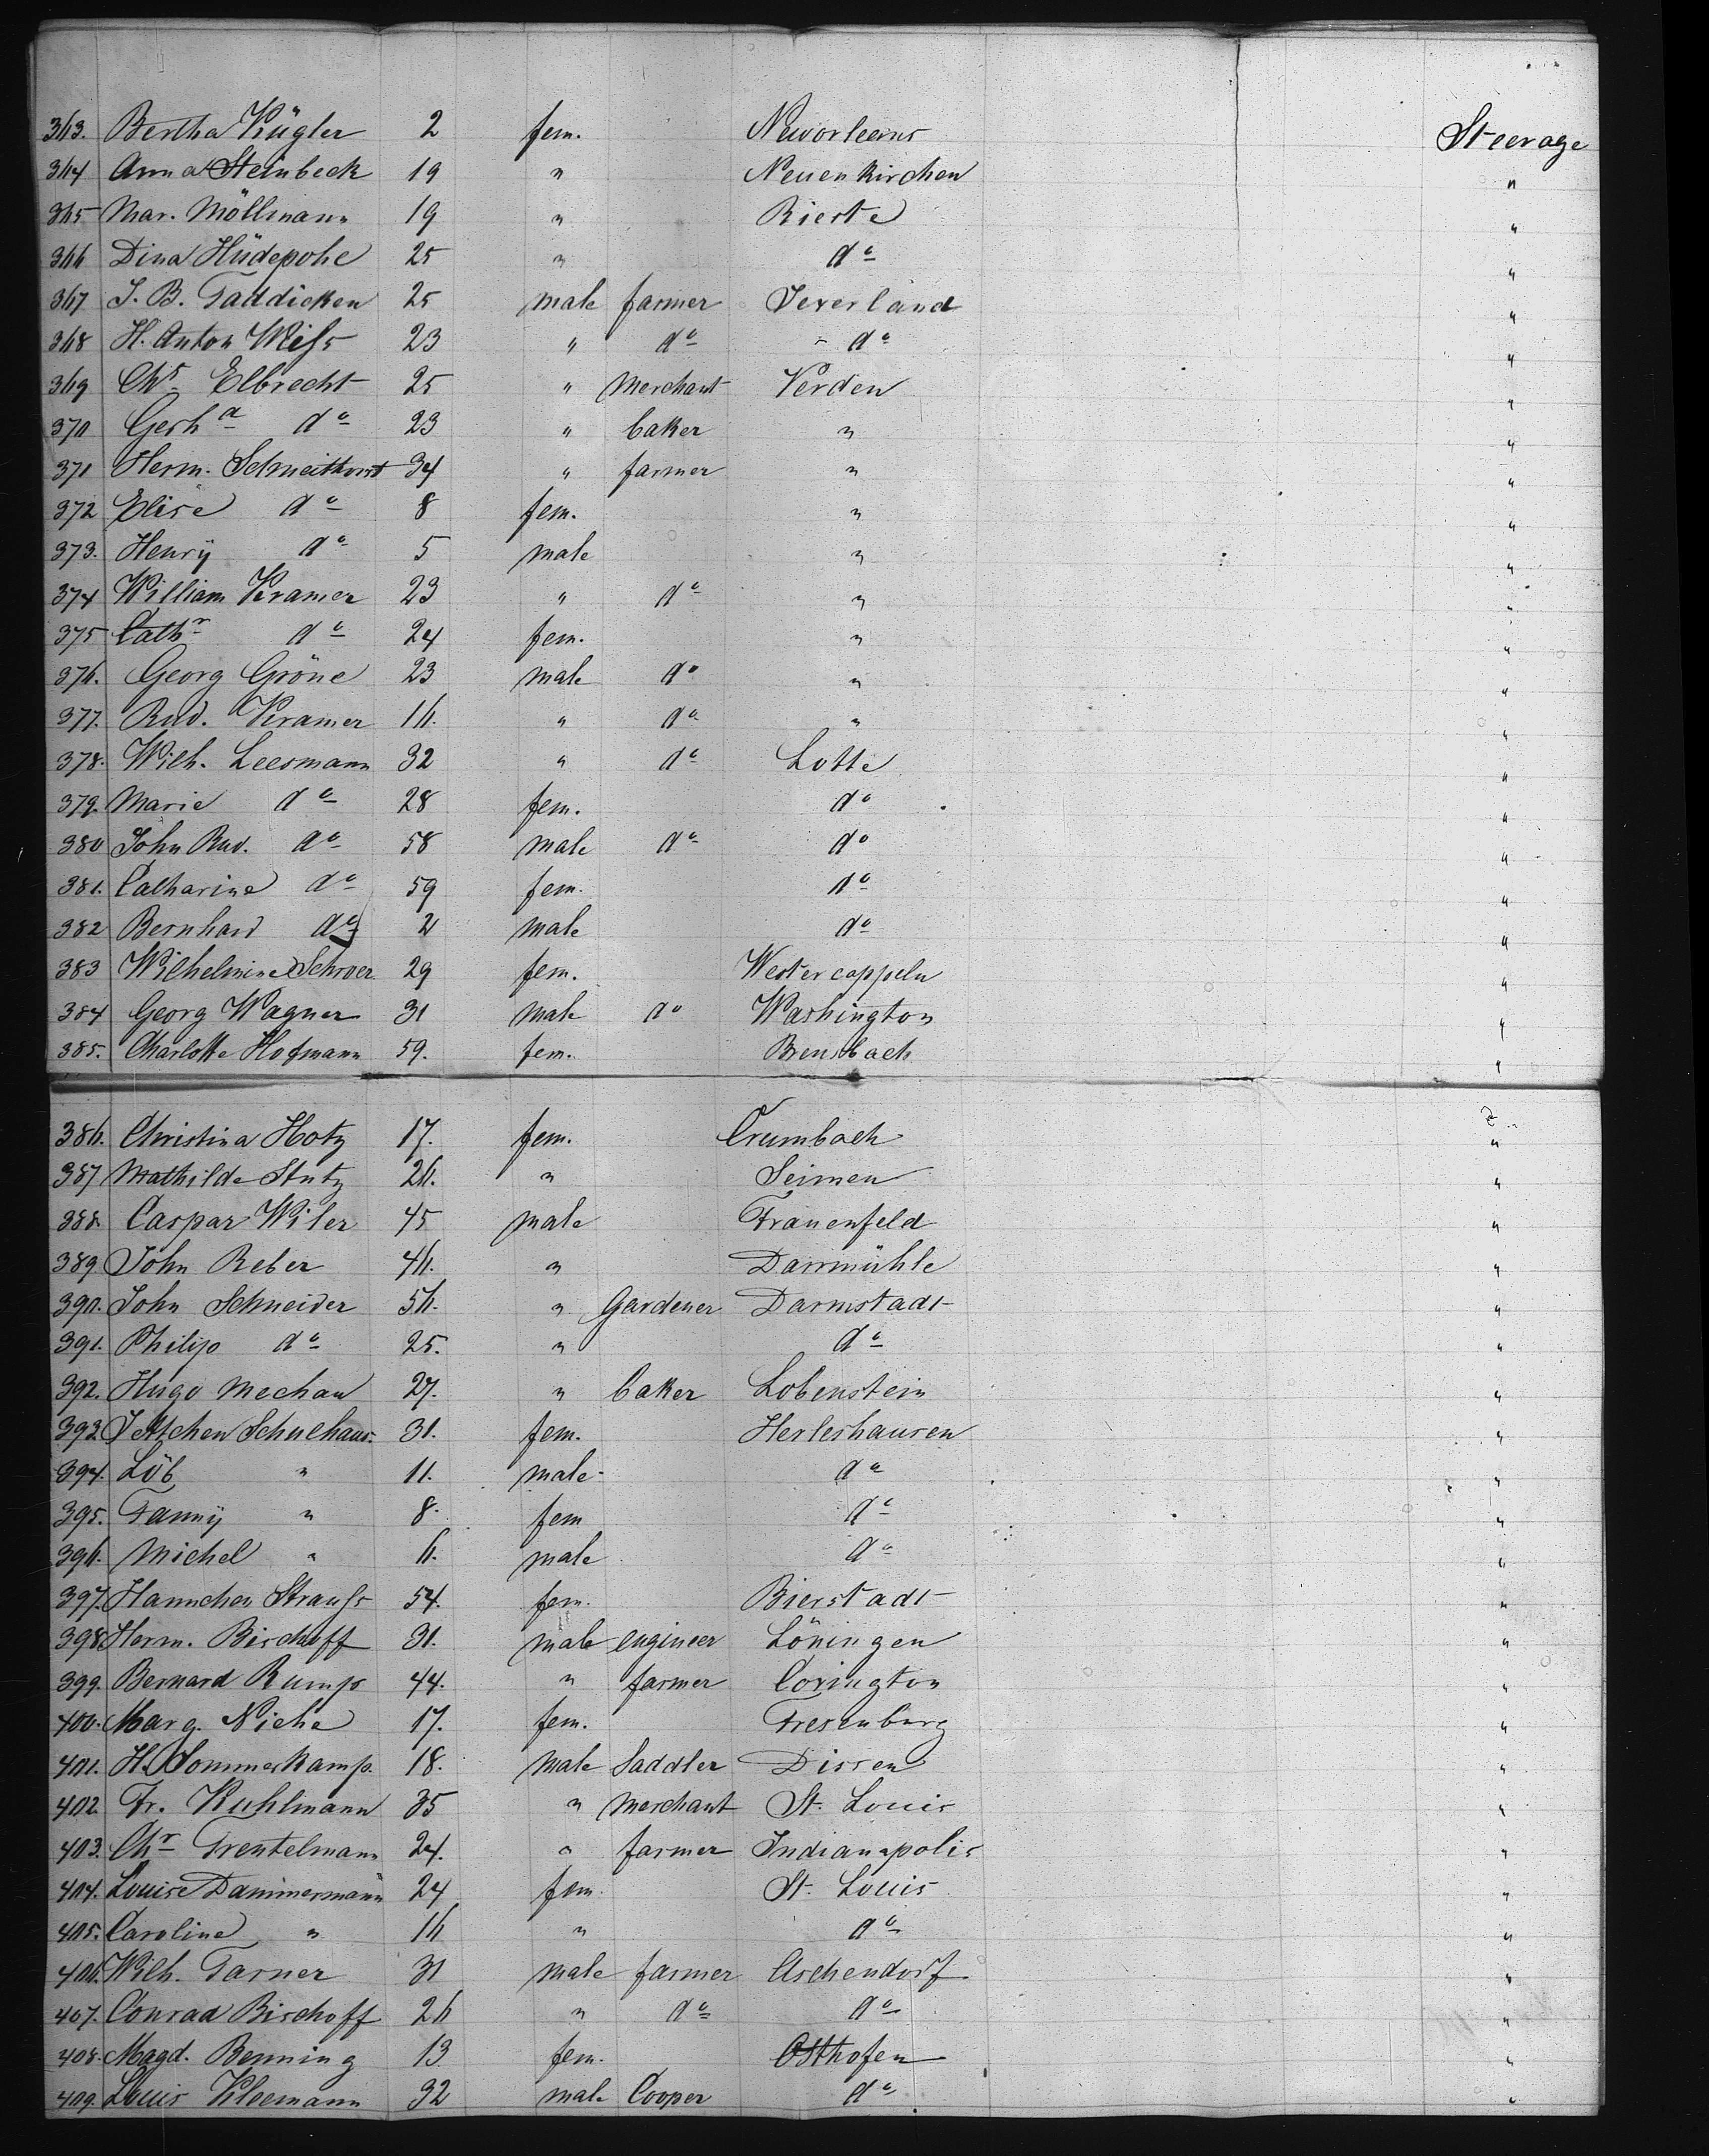 363. Bertha Kügler 2 fem. Neworleans Steerage
364 Anna Steinbeck 19 " Neuenkirchen "
365 Mar. Möllmann 19 " Rieste "
366 Dina Hüdepohl 25 " do "
367 J. B. Taddicken 25 male farmer Jeverland "
368 H. Anton Weiss 23 " do " do "
369 Chr. Elbrecht 25 " Merchant Verden "
370 Gerhd do 23 " baker " "
371 Herm. Schneithorst 34 " farmer " "
372 Elise do 8 fem. " "
373. Henrÿ do 5 male " "
374 William Kramer 23 " do " "
375 Cathr do 24 fem. " "
376. Georg Gröne 23 male do " "
377. Rud. Kramer 16. " do " "
378. Wilh. Leesmann 32 " do Lotte "
379. Marie do 28 fem. do "
380 John Rud. do 58 male do do "
381. Catharine do 59 fem. do "
382 Bernhard do 2 male do "
383 Wilhelmine Schroer 29 fem. Westercappeln "
384 Georg Wagner 31 male do Washington "
385. Charlotte Hofmann 59. fem. Brensbach "
386. Christina Hotz 17. fem. Crumbach "
387 Mathilde Stutz 26. " Seimen "
388. Caspar Wiler 45 male Frauenfeld "
389. John Reber 46. " Darrmühle "
390. John Schneider 56. " Gardener Darmstadt "
391. Philip do 25. " do "
392. Hugo Mechau 27. " baker Lobenstein "
393. Jettchen Schulhaus. 31. fem. Herleshausen "
394. Löb " 11. male do "
395. Fannÿ " 8. fem do "
396. Michel " 6. male do "
397. Hannchen Strauss 54. fem. Bierstadt "
398. Herm. Bischoff 31. male engineer Löningen "
399. Bernard Rump 44. " farmer Covington "
400. Marg. Niehe 17. fem. Fresenburg "
401. H. Sommerkamp. 18. male Saddler Dissen "
402 Fr. Kuhlmann 35 " merchant St. Louis "
403. Chr Trentelmann 24. " farmer Indianapolis "
404. Louise Dammermann 24 fem. St. Louis "
405. Caroline " 16 " do "
406. Wilh. Tarner 31 male farmer Aschendorf "
407. Conrad Bischoff 26 " do do "
408. Magd. Benning 13 fem. Osthofen "
409. Louis Kloemann 32 male Cooper do "